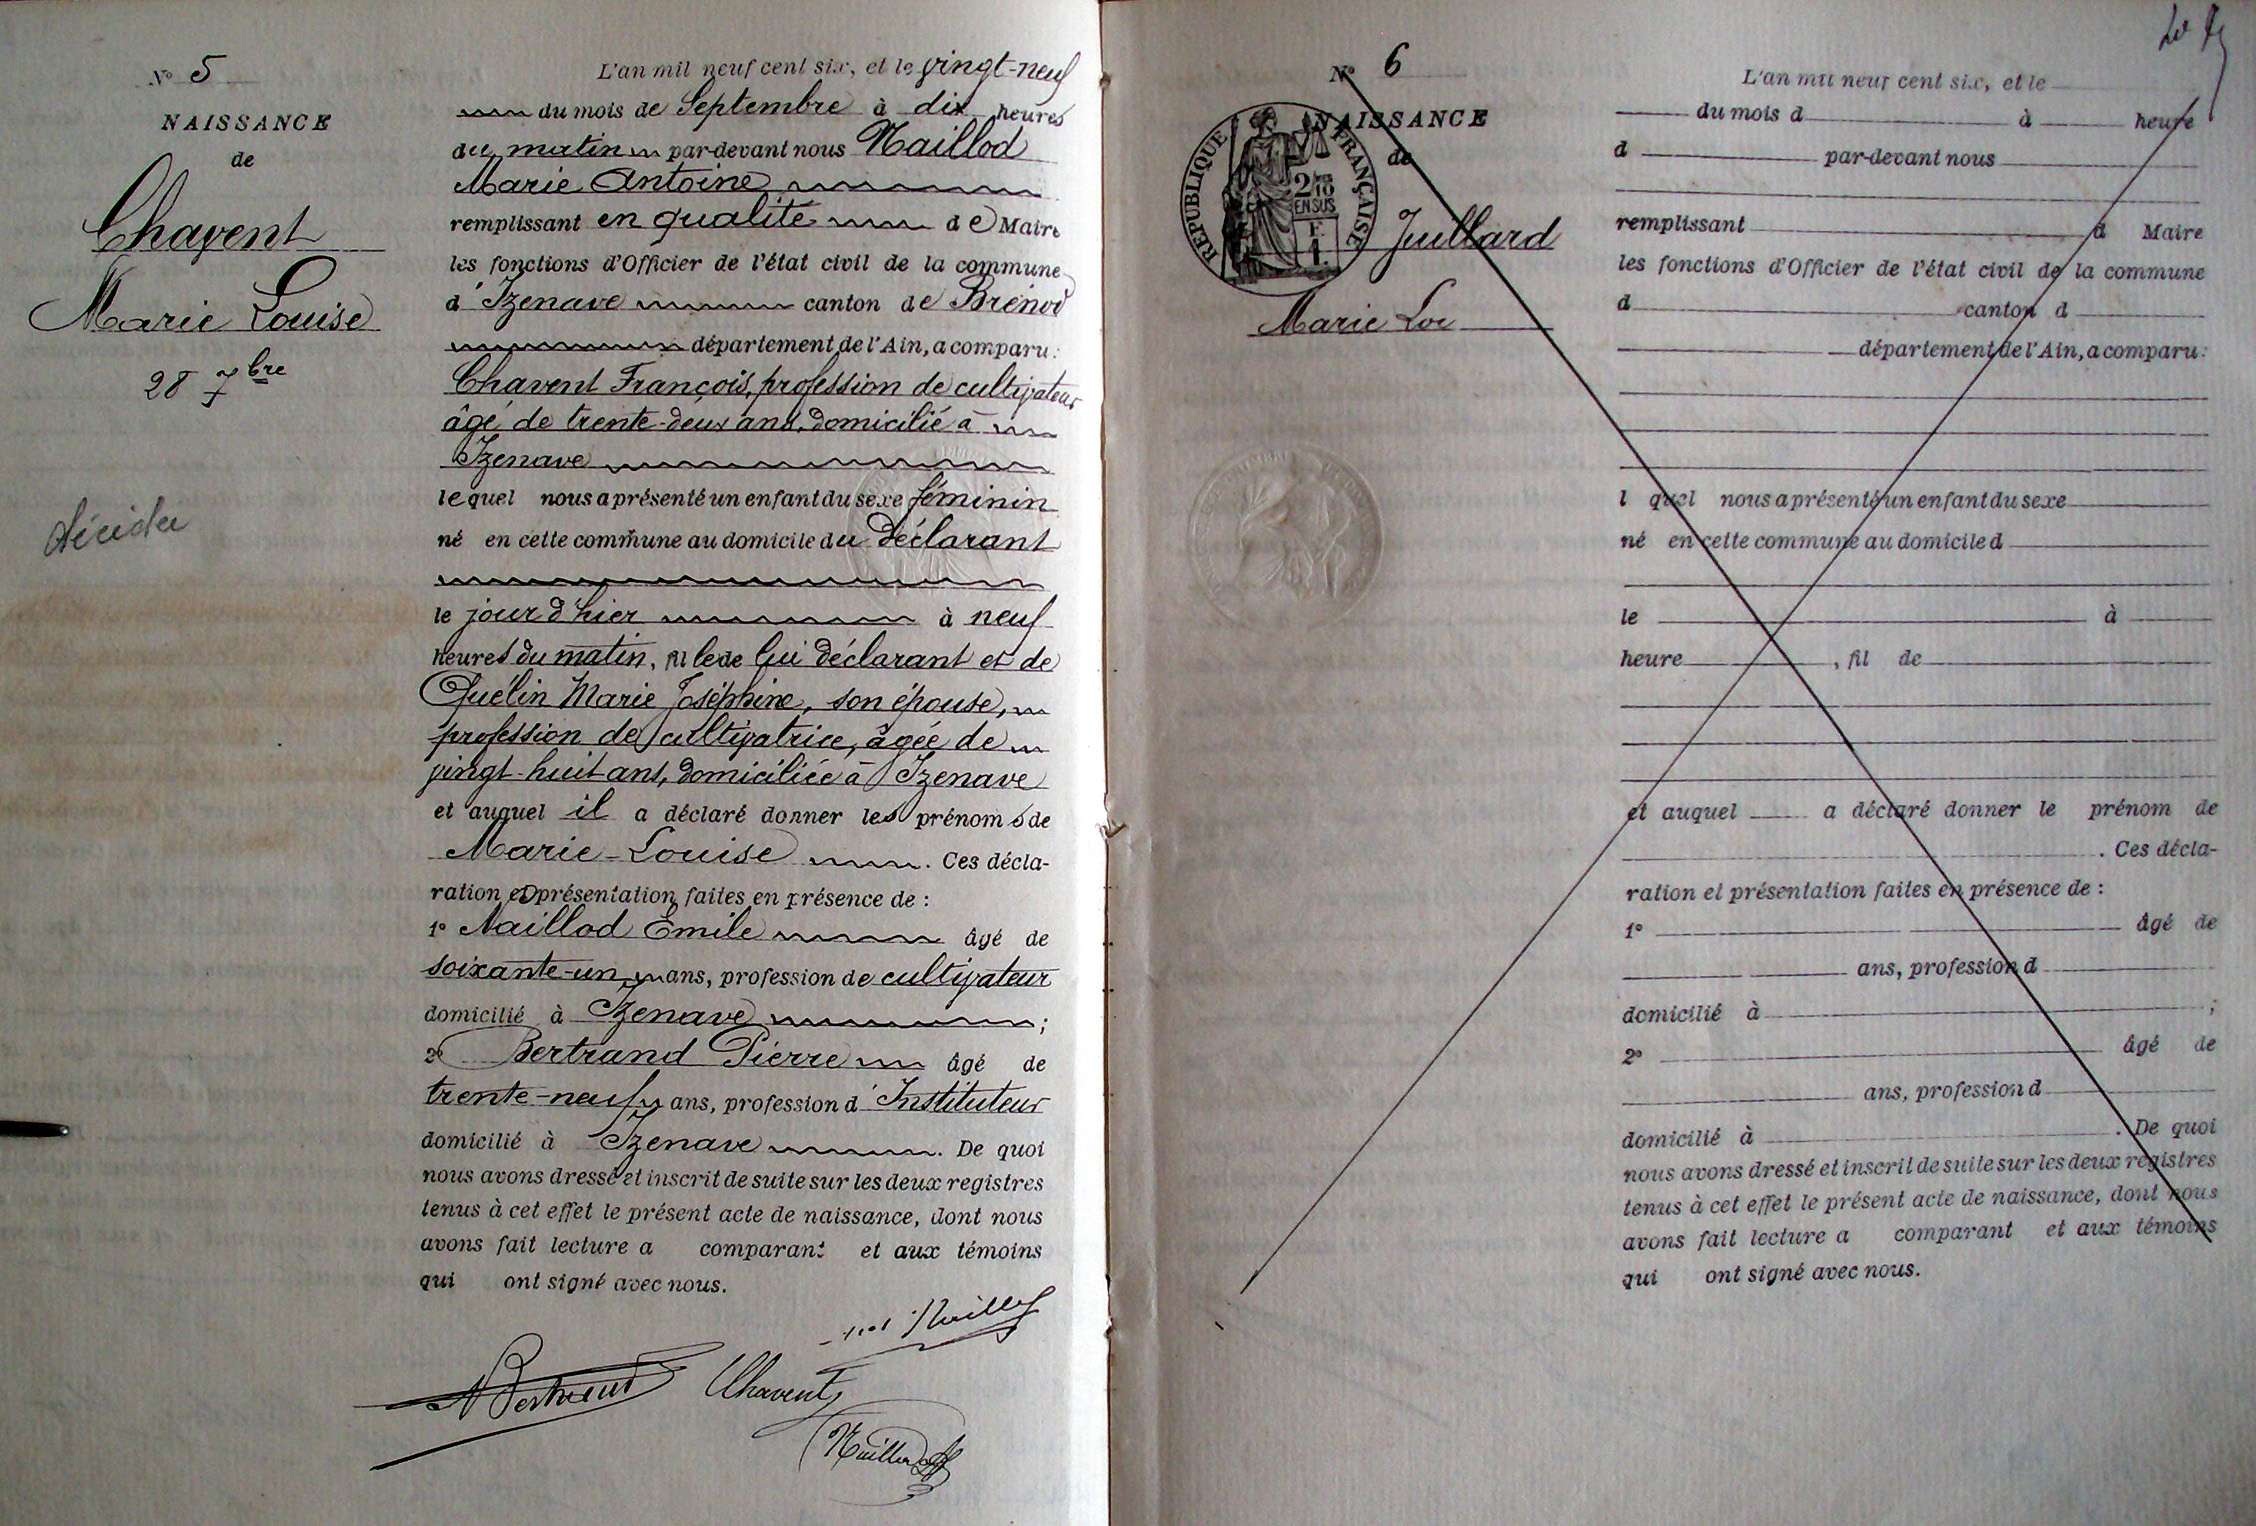 Nº 5
NAISSANCE
de
Chavent
Marie Louise
28 7bre
L'an mil neuf cent six, et le vingt-neuf
du mois de Septembre à dix heures
du matin par-devant nous Naillod
Marie Antoine
remplissant en qualité de Maire
les fonctions d'Officier de l'état civil de la commune
d'Izenave canton de Brénod
département de l'Ain, a comparu:
Chavent François, profession de cultivateur
âgé de trente-deux ans, domicilié à
Izenave
lequel nous a présenté un enfant du sexe féminin
né en cette commune au domicile du déclarant
le jour d'hier à neuf
heures du matin, fille de lui déclarant et de
Quélin Marie Joséphine, son épouse,
profession de cultivatrice, âgée de
vingt-huit ans, domiciliée à Izenave
et auquel il a déclaré donner les prénoms de
Marie-Louise . Ces décla-
ration et présentation faites en présence de :
1º Naillod Emile âgé de
soixante-un ans, profession de cultivateur
domicilié à Izenave ;
2º Bertrand Pierre âgé de
trente-neuf ans, profession d'Instituteur
domicilié à Izenave . De quoi
nous avons dressé et inscrit de suite sur les deux registres
tenus à cet effet le présent acte de naissance, dont nous
avons fait lecture a comparant et aux témoins
qui ont signé avec nous.
Bertrand Chavent
Nº 6
NAISSANCE
de
RÉPUBLIQUE FRANÇAISE
2/10
EN SUS
Juillard
Marie Lou
L'an mil neuf cent six, et le
du mois d à heure
d par-devant nous
remplissant d Maire
les fonctions d'Officier de l'état civil de la commune
d canton d
département de l'Ain, a comparu:
l quel nous a présenté un enfant du sexe
né en cette commune au domicile d
le à
heure , fil de
et auquel a déclaré donner le prénom de
. Ces décla-
ration et présentation faites en présence de :
1º âgé de
ans, profession d
domicilié à ;
2º âgé de
ans, profession d
domicilié à . De quoi
nous avons dressé et inscrit de suite sur les deux registres
tenus à cet effet le présent acte de naissance, dont nous
avons fait lecture a comparant et aux témoins
qui ont signé avec nous.